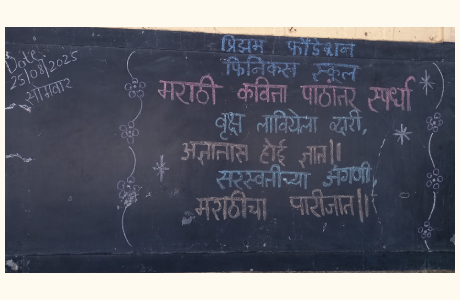 Date
25/08/2025
सोमवार
प्रिझम फौंडेशन
फिनिक्स स्कूल
मराठी कविता पाठांतर स्पर्धा
वृक्ष लावियेला द्वारी,
अज्ञातास होई ज्ञात||
सरस्वतीच्या अंगणी,
मराठीचा पारीजात||